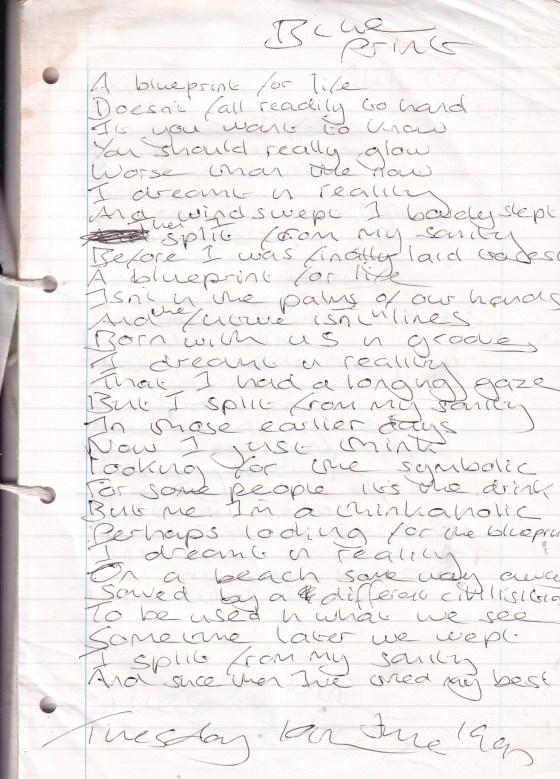 Blue
Print
A blueprint for life
Doesn't fall readily to hand
If you want to know
You should really glow
Worse than the now
I dreamt in reality
And windswept I barely slept
Then I split from my sanity
Before I was finally laid to rest
A blueprint for life
Isn't in the palms of our hands
And the future isn't in lines
Born with us in grooves
I dreamt in reality
That I had a longing gaze
But I split from my sanity
In those earlier days
Now I just think
Looking for the symbolic
For some people it's the drink
But me I'm a thinkaholic
Perhaps looking for the blueprin
I dreamt in reality
On a beach some way away
Sowed by a different civilisatio
To be used in what we see
Sometime later we wept
I split from my sanity
And since then I've tried my best
Tuesday June '9